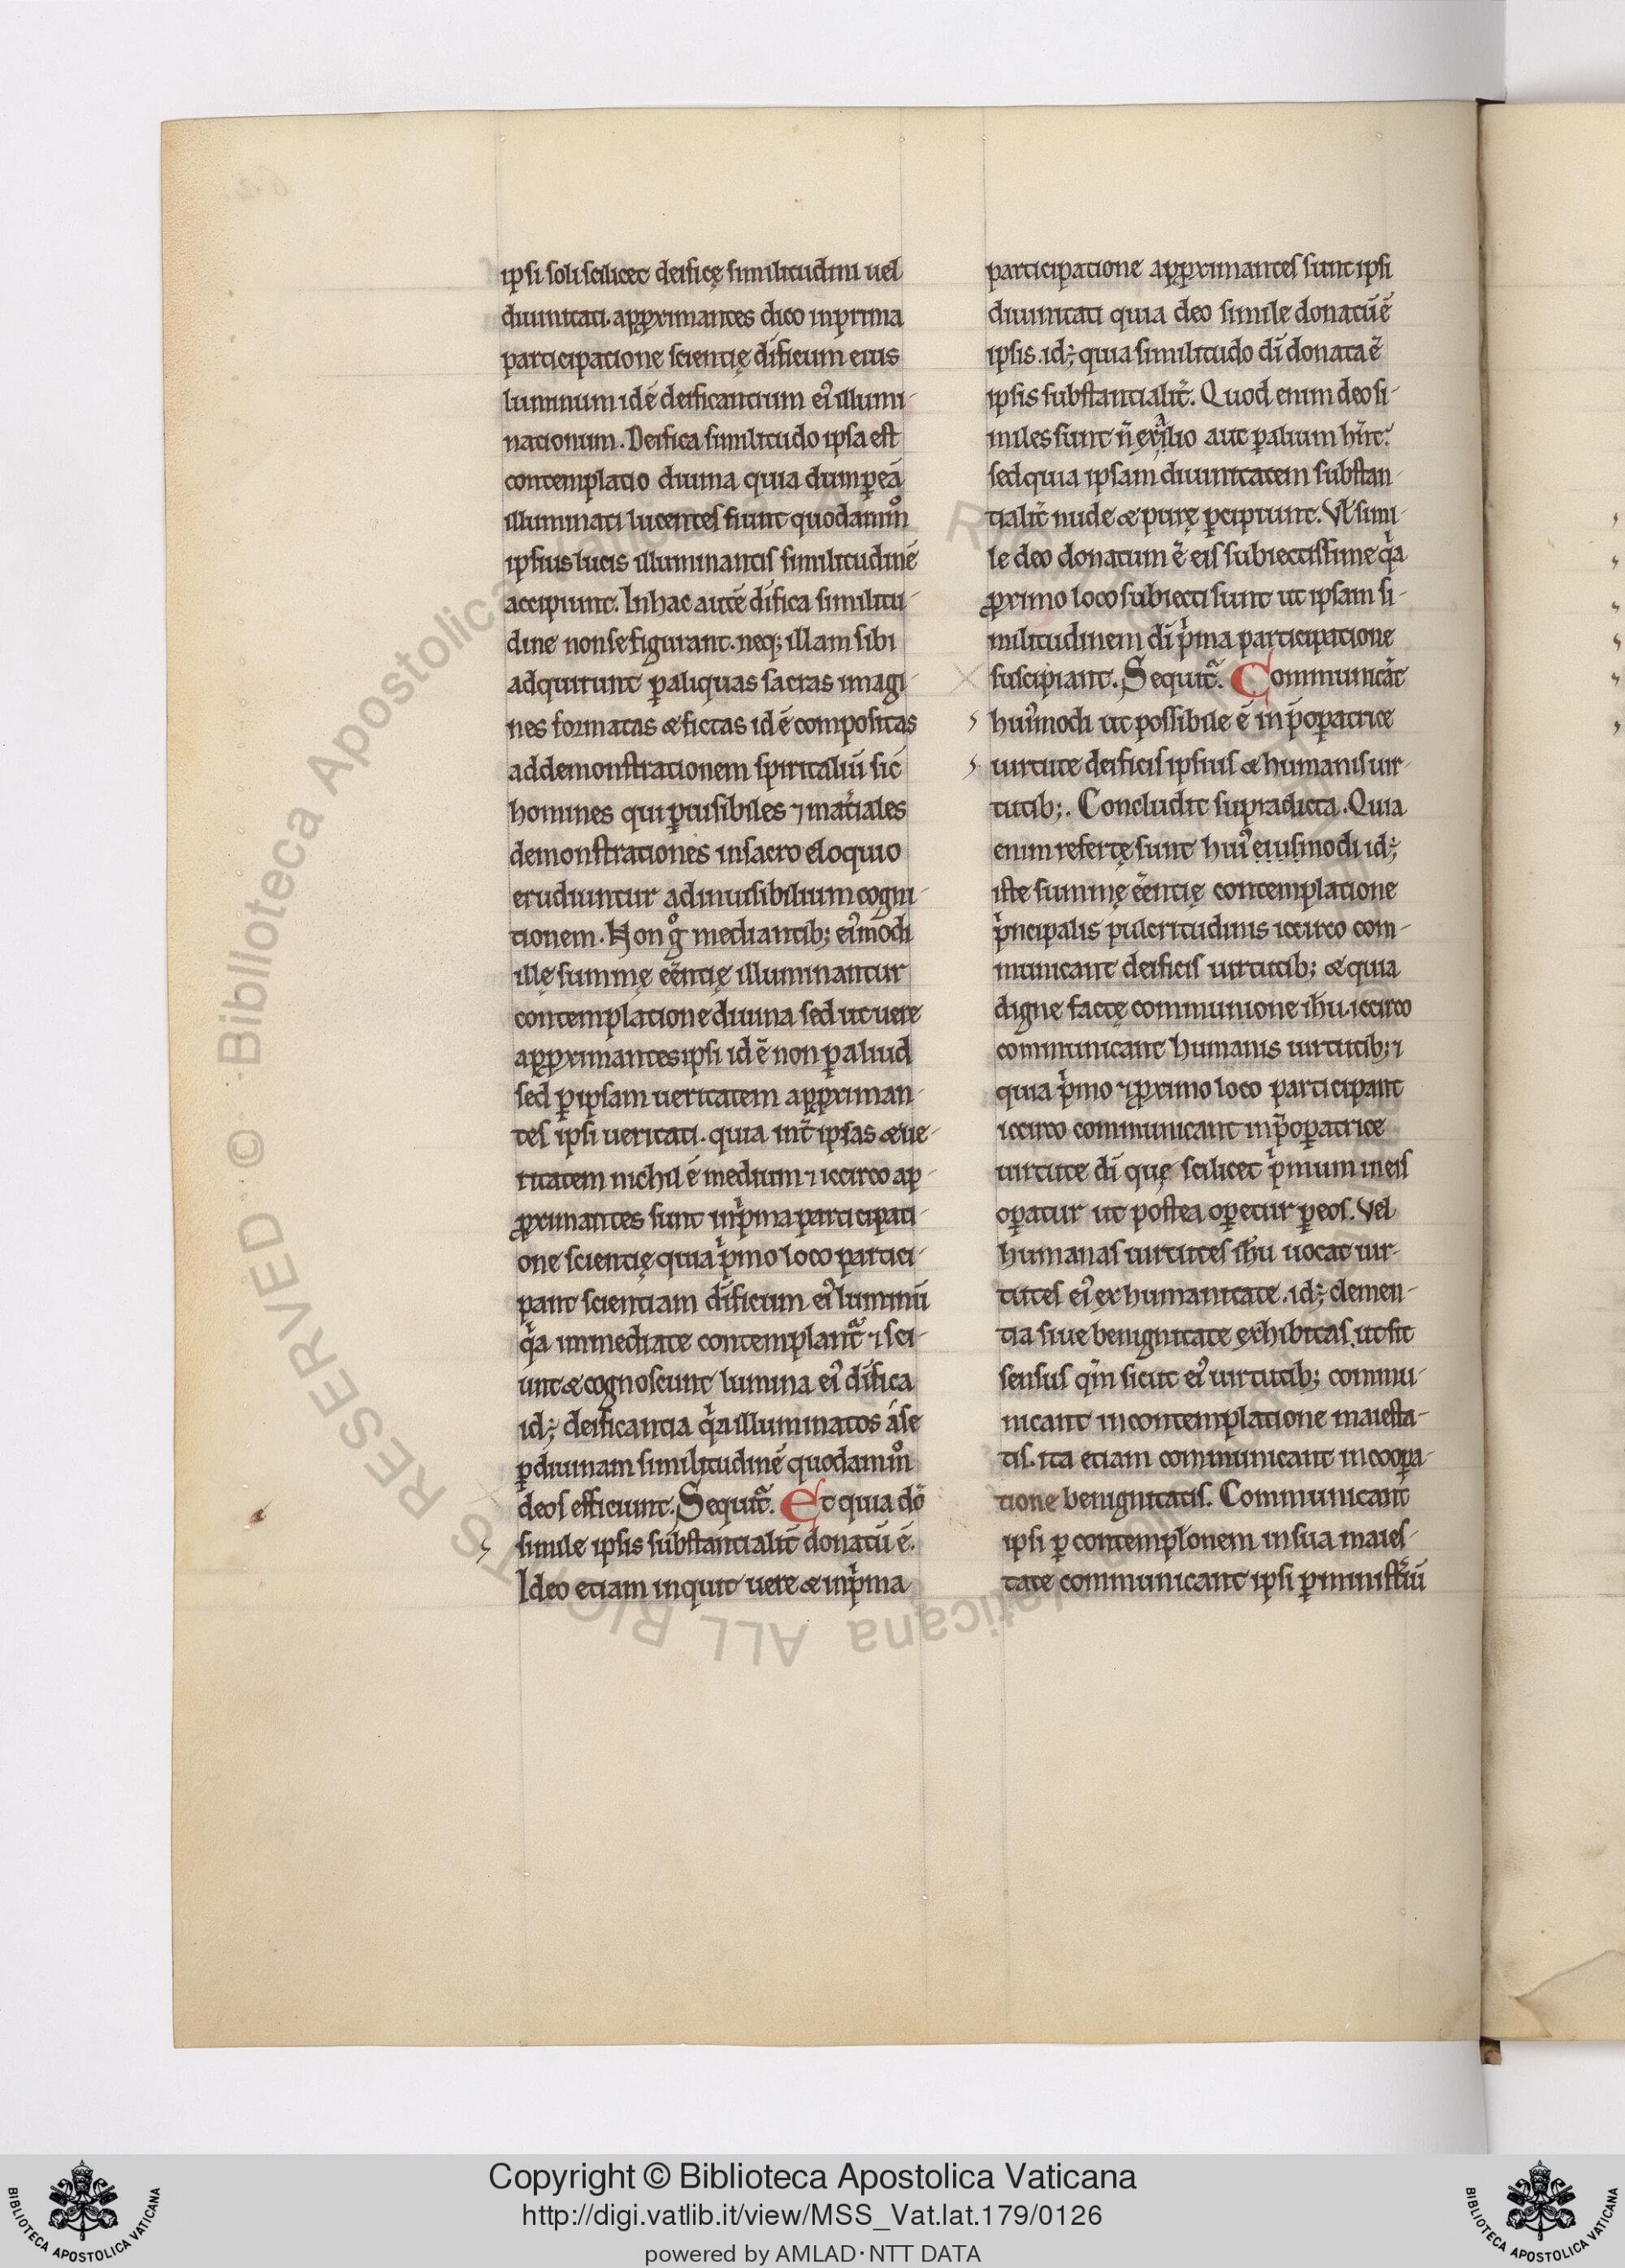 ipsi soli scilicet deificę similitudini uel
diuinitati. apꝓximantes dico in prima
participatione scientię dificum eius
luminum id ē deificantium ei᾿ illumi-
nationum. Deifica similitudo ipsa est
contemplatio diuina quia dum ꝑ eā
illuminati lucentes fiunt quodāmo
ipsius lucis illuminantis similitudinē
accipiunt. In hac autē difica similitu-
dine non se figurant. neq; illam sibi
adquirunt ꝑ aliquas sacras imagi-
nes formatas & fictas id ē compositas
ad demonstrationem spiritaliū sic
homines qui ꝑ uisibiles ⁊ mat̄iales
demonstrationes in sacro eloquio
erudiuntur ad inuisibilium cogni-
tionem. Non gͦ mediantib; ei᾿modi
illę summę eēntię illuminantur
contemplatione diuina sed ut uere
apꝓximantes ipsi id ē non ꝑ aliud
sed ꝑ ipsam ueritatem apꝓximan-
tes ipsi ueritati. quia int̄ ipsas & ue-
ritatem nichil ē medium ⁊ iccirco ap-
ꝓximantes sunt in pͥma participati-
one scientię quia pͥmo loco partici-
pant scientiam dificum ei᾿ luminū
qͥa immediate contemplant̄ ⁊ sci-
unt & cognoscunt lumina ei᾿ difica
id; deificantia qͥa illuminatos á se
ꝑ diuinam similitudinē quodammͦ
deos efficiunt. Sequit̄. Et quia dō
simile ipsis substantialit̄ donatū ē.
Ideo etiam inquit uere & in pͥma
participatione apꝓximantes sunt ipsi
diuinitati quia deo simile donatū ē
ipsis. id; quia similitudo dī donata ē
ipsis substantialit̄. Quod enim deo si-
miles sunt n̄ ex alio aut ꝑ alium hn̄t.
sed quia ipsam diuinitatem substan-
tialit̄ nude & purę ꝑcipiunt. Vł simi-
le deo donatum ē eis subiectissime qͥa
ꝓximo loco subiecti sunt ut ipsam si-
militudinem dī pͥma participatione
suscipiant. Sequit̄. Communicāt
hui᾿modi ut possibile ē in p̄oꝑatrice
uirtute deificis ipsius & humanis uir-
tutib;. Concludit supradicta. Quia
enim refertę sunt hui᾿ eiusmodi id;
iste summę eēntię contemplatione
pͥncipalis pulcritudinis iccirco com-
municant deificis uirtutib; & quia
digne factę communione ih̄u. iccirco
communicant humanis uirtutib; ⁊
quia pͥmo ⁊ ꝓximo loco participant
iccirco communicant in p̄oꝑatrice
uirtute dī quę scilicet pͥmum in eis
oꝑatur ut postea oꝑetur ꝑ eos. Vel
humanas uirtutes ih̄u uocat uir-
tutes ei᾿ ex humanitate. id; clemen-
tia siue benignitate exhibitas. ut sit
sensus qm̄ sicut ei᾿ uirtutib; commu-
nicant in contemplatione maiesta-
tis. ita etiam communicant in cooꝑa-
tione benignitatis. Communicant
ipsi ꝑ contempłonem in sua maies-
tate communicant ipsi ꝑ minist̄iū
Copyright © Biblioteca Apostolica Vaticana
http://digi.vatlib.it/view/MSS_Vat.lat.179/0126
powered by AMLAD·NTT DATA
BIBLIOTECA APOSTOLICA VATICANA
BIBLIOTECA APOSTOLICA VATICANA
© Biblioteca Apostolica Vaticana ALL RIGHTS RESERVED